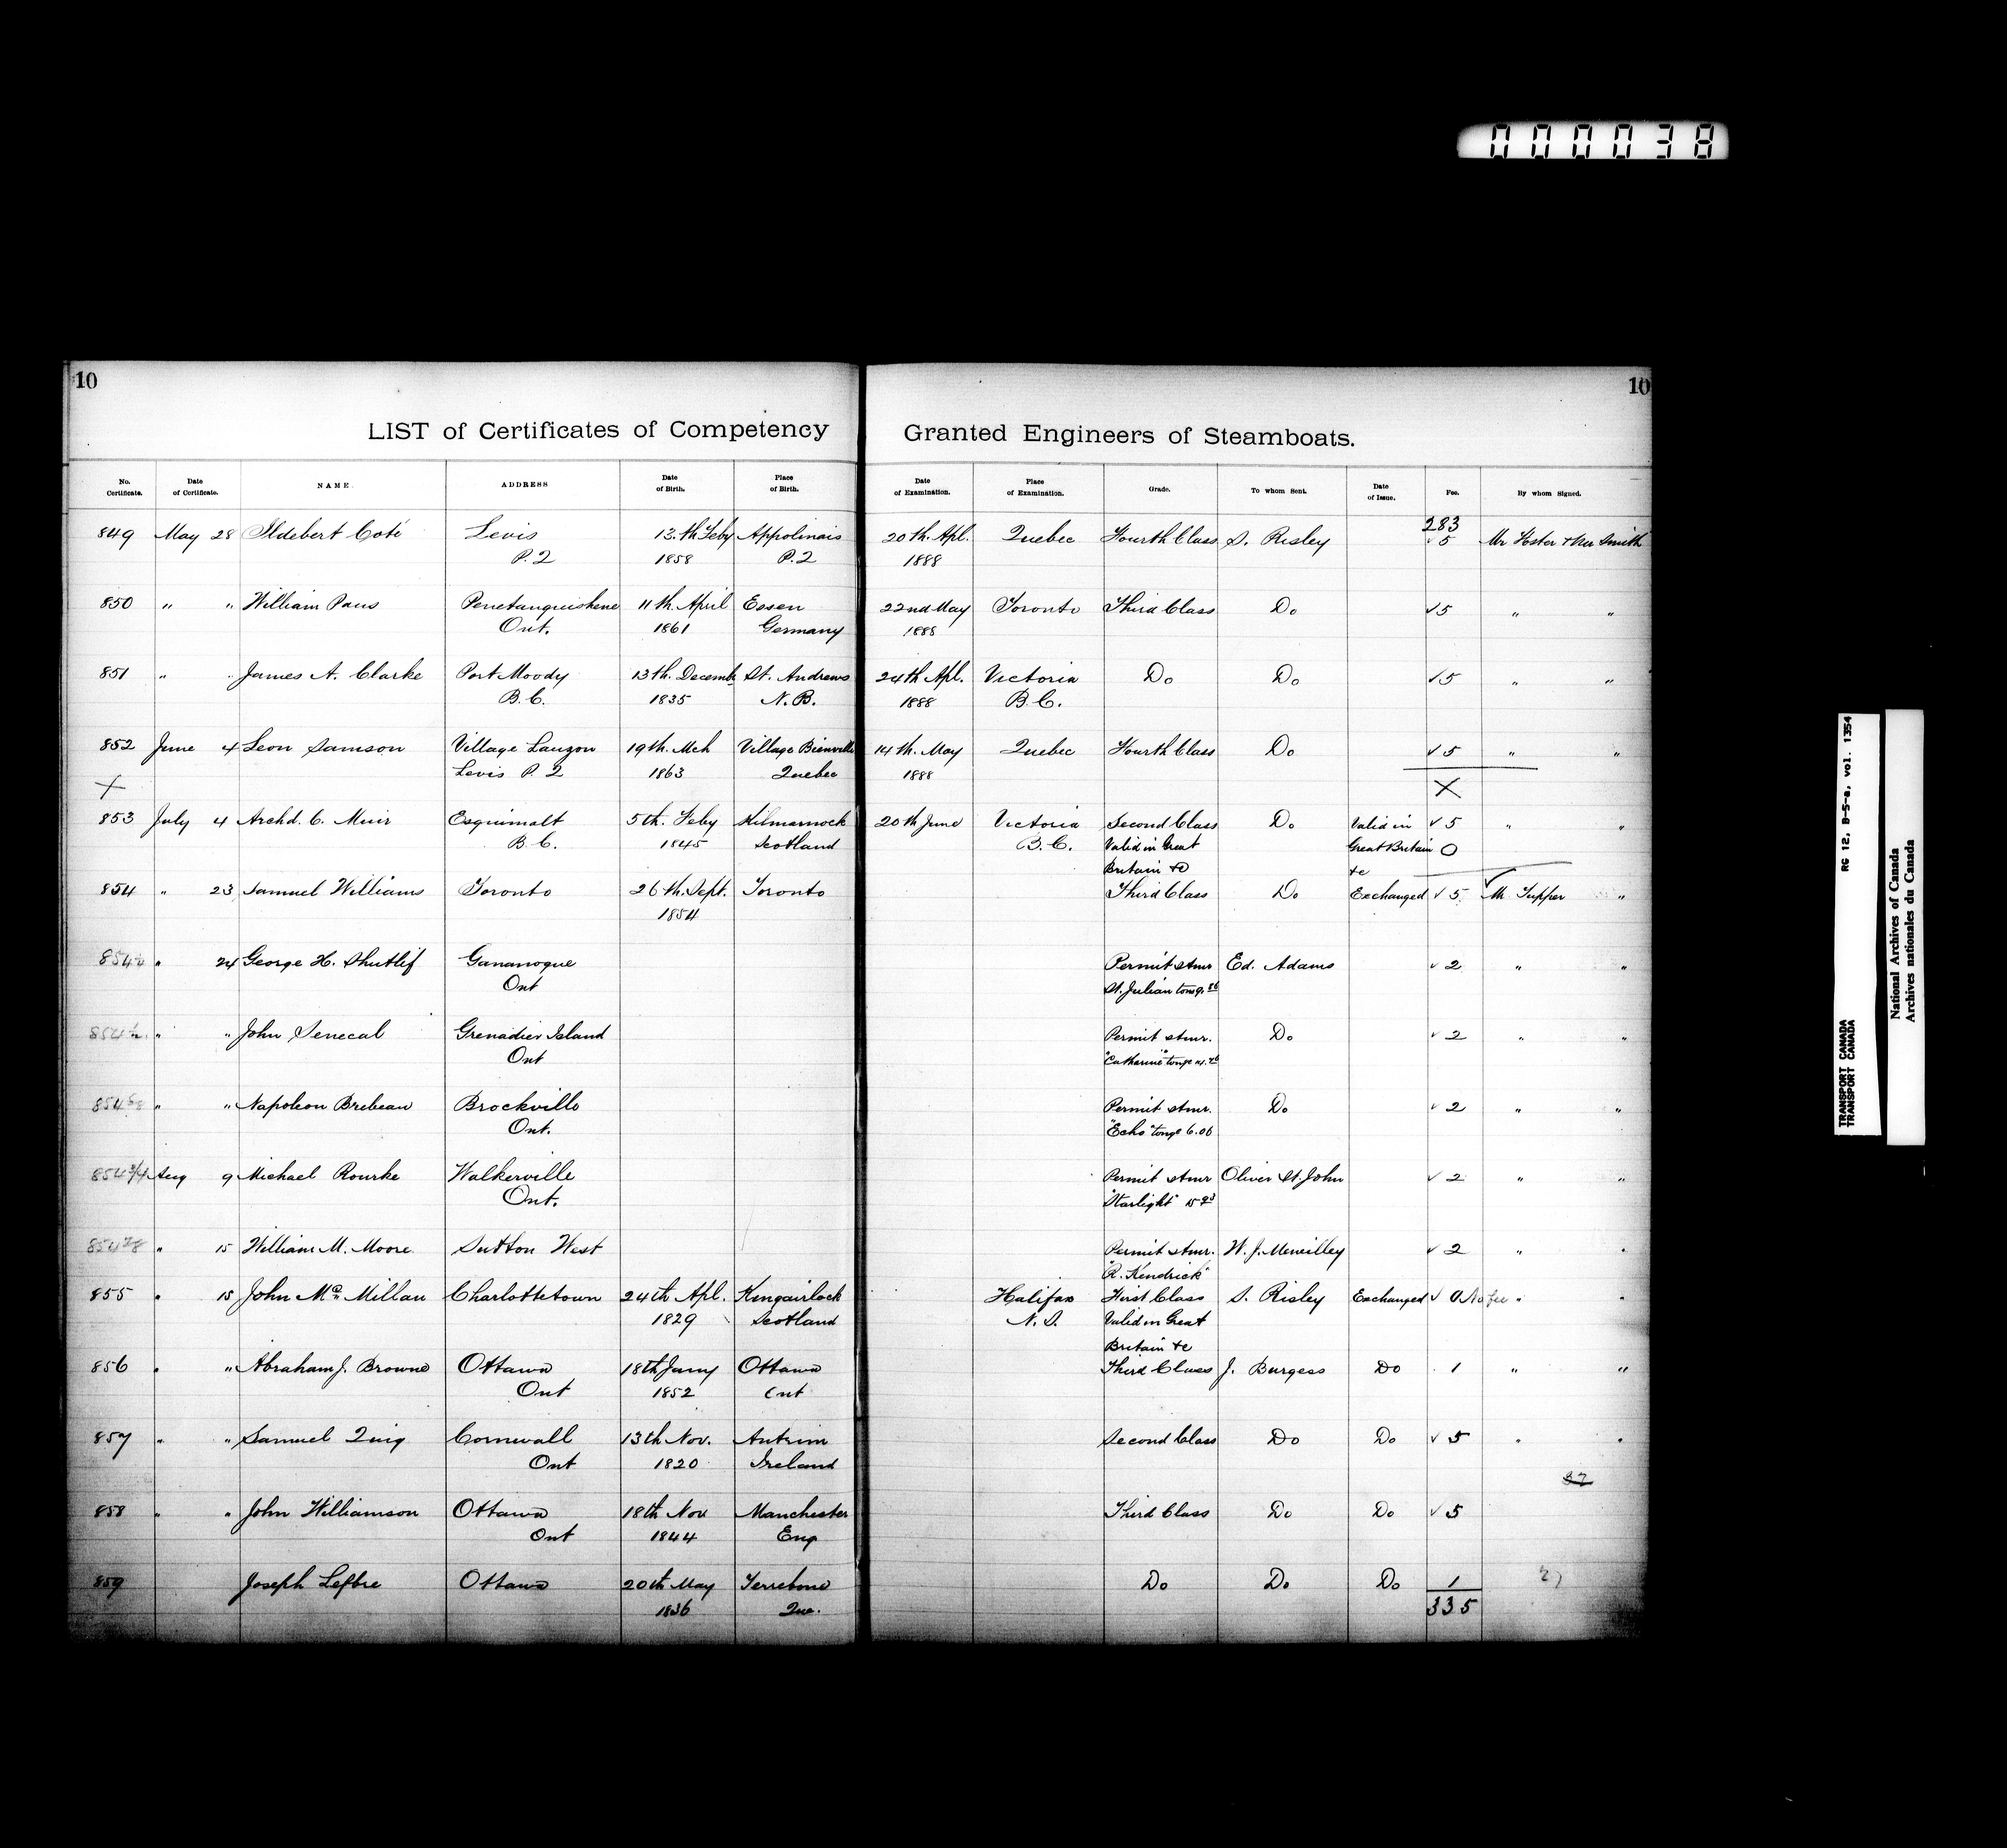 000038
10
10
LIST of Certificates of Competency Granted Engineers of Steamboats.
No. Certificate. Date of Certificate. NAME. ADDRESS Date of Birth. Place of Birth. Date of Examination. Place of Examination. Grade. To whom Sent. Date of Issue. Fee. By whom Signed.
283
849 May 28 Ildebert Coté Levis 13.th Feby Appolinais 20th. Apl. Quebec Fourth Class S. Risley √5 Mr Foster & Mr Smith
P.Q 1858 P.Q 1888
850 " " William Paus Penetanguishene 11th. April Essen 22nd May Toronto Third Class Do √5 " "
Ont. 1861 Germany 1888
851 " " James A. Clarke Port Moody 13th. Decemb St. Andrews 24th Apl. Victoria Do Do √5 " "
B.C. 1835 N.B. 1888 B.C.
852 June 4 Leon Samson Village Lauzon 19th. Mch Village Bienville 14th. May Quebec Fourth Class Do √5 " "
X Levis P.Q 1863 Quebec 1888 X
853 July 4 Archd. C. Muir Esquimalt 5th. Feby Kilmarnock 20th June Victoria Second Class Do Valid in √5 " "
B.C. 1845 Scotland B.C. Valid in Great Great Britain O
Britain &c &c
854 " 23 Samuel Williams Toronto 26th. Sept. Toronto Third Class Do Exchanged √5. Mr Tupper "
1854
854 " 24 George H. Shutlif Gananoque Permit stmr Ed. Adams √2 " "
Ont St. Julian tong.
854½ " " John Senecal Grenadier Island Permit stmr. Do √2 " "
Ont "Catharine" tonge
854 " " Napoleon Brebeau Brockville Permit stmr. Do √2 " "
Ont. "Echo" tonge 6.06
854 3/4 Aug 9 Michael Rourke Walkerville Permit stmr Oliver St. John √2 " "
Ont. "Starlight" 15
854 7/8 " 15 William M. Moore Sutton West Permit stmr. W. J. Meneilley √2 " "
"R. Kendrick"
855 " 15 John McMillan Charlottetown 24th Apl. Kingairlock Halifax First Class S. Risley Exchanged √ 0 No fee " "
1829 Scotland N.S. Valid in Great
Britain &c
856 " " Abraham J. Browne Ottawa 18th Jany Ottawa Third Class J. Burgess Do 1 " "
Ont 1852 Ont
857 " " Samuel Quig Cornwall 13th Nov. Antrim Second Class Do Do √5 " "
Ont 1820 Ireland
858 " " John Williamson Ottawa 18th Nov Manchester Third Class Do Do √5
Ont 1844 Eng
859 Joseph Lefbre Ottawa 20th May Terrebone Do Do Do 1
1836 Que. 335
TRANSPORT CANADA RG 12, B-5-a, vol. 1354
TRANSPORT CANADA
National Archives of Canada
Archives nationales du Canada